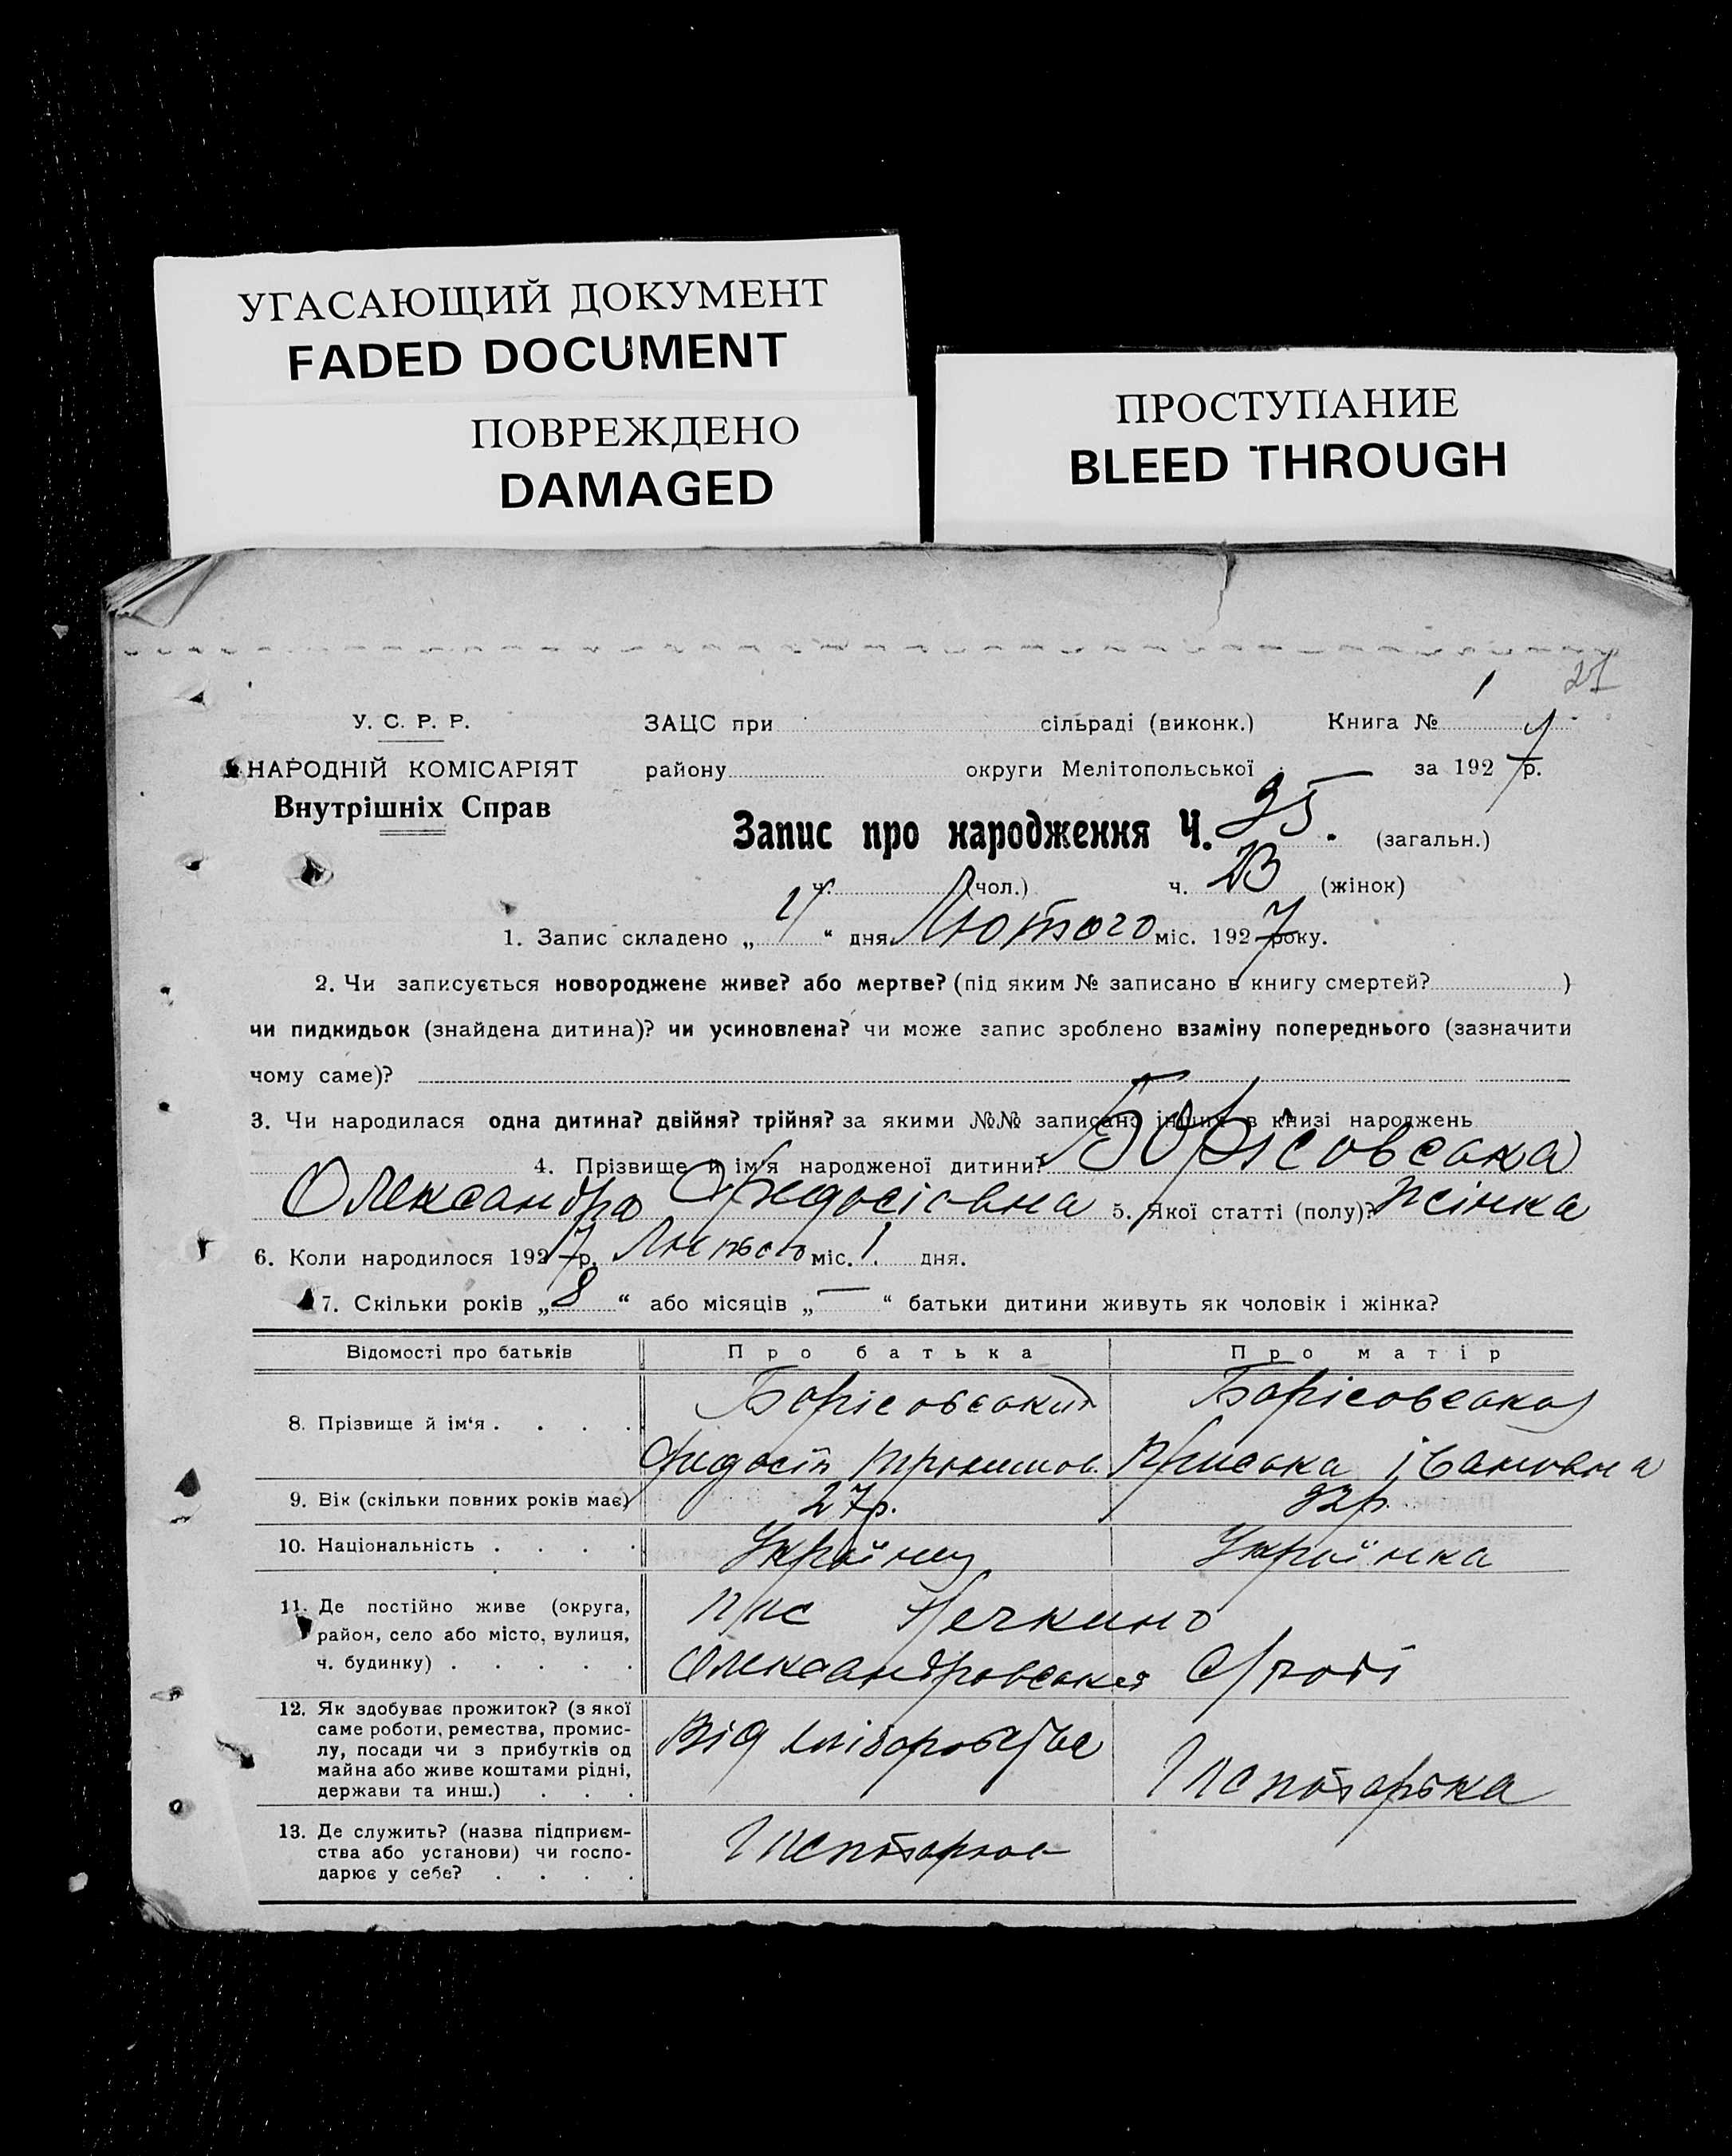 УГАСАЮЩИЙ ДОКУМЕНТ
FADED DOCUMENT
ПОВРЕЖДЕНО
DAMAGED
ПРОСТУПАНИЕ
BLEED THROUGH
1 21
У. С. Р. Р. ЗАЦС при сільраді (виконк.) Книга №
НАРОДНІЙ КОМІСАРІЯТ району округи Мелітопольської за 1927 р.
Внутрішніх Справ
Запис про народження Ч. 35. (загальн.)
ч. (чол.) ч. (жінок)
1. Запис складено „ “ дня Лютого міс. 1927 року.
2. Чи записується новороджене живе? або мертве? (під яким № записано в книгу смертей? )
чи пидкидьок (знайдена дитина)? чи усиновлена? чи може запис зроблено взаміну попереднього (зазначити
чому саме)?
3. Чи народилася одна дитина? двійня? трійня? за якими №№ записано інших в книзі народжень
4. Прізвище й ім'я народженої дитини? Борісовська
Олександра Федосієвна 5. Якої статті (полу)? жінка
6. Коли народилося 1927 р. Лютого міс. 1 дня.
7. Скільки років „ 8 “ або місяців „ — “ батьки дитини живуть як чоловік і жінка?
Відомості про батьків Про батька Про матір
8. Прізвище й ім'я . . . . Борісовський Борісовська
Федосій Пріська Івановна
9. Вік (скільки повних років має) 27р. 32р.
10. Національність . . . . Українец Українка
11. Де постійно живе (округа,
район, село або місто, вулиця,
ч. будинку) . . . . .
Нечкино
Олександровської
12. Як здобуває прожиток? (з якої
саме роботи, ремества, промис-
лу, посади чи з прибутків од
майна або живе коштами рідні,
держави та инш.) . . .
Від хліборобства
13. Де служить? (назва підприєм-
ства або установи) чи госпо-
дарює у себе? . . . .